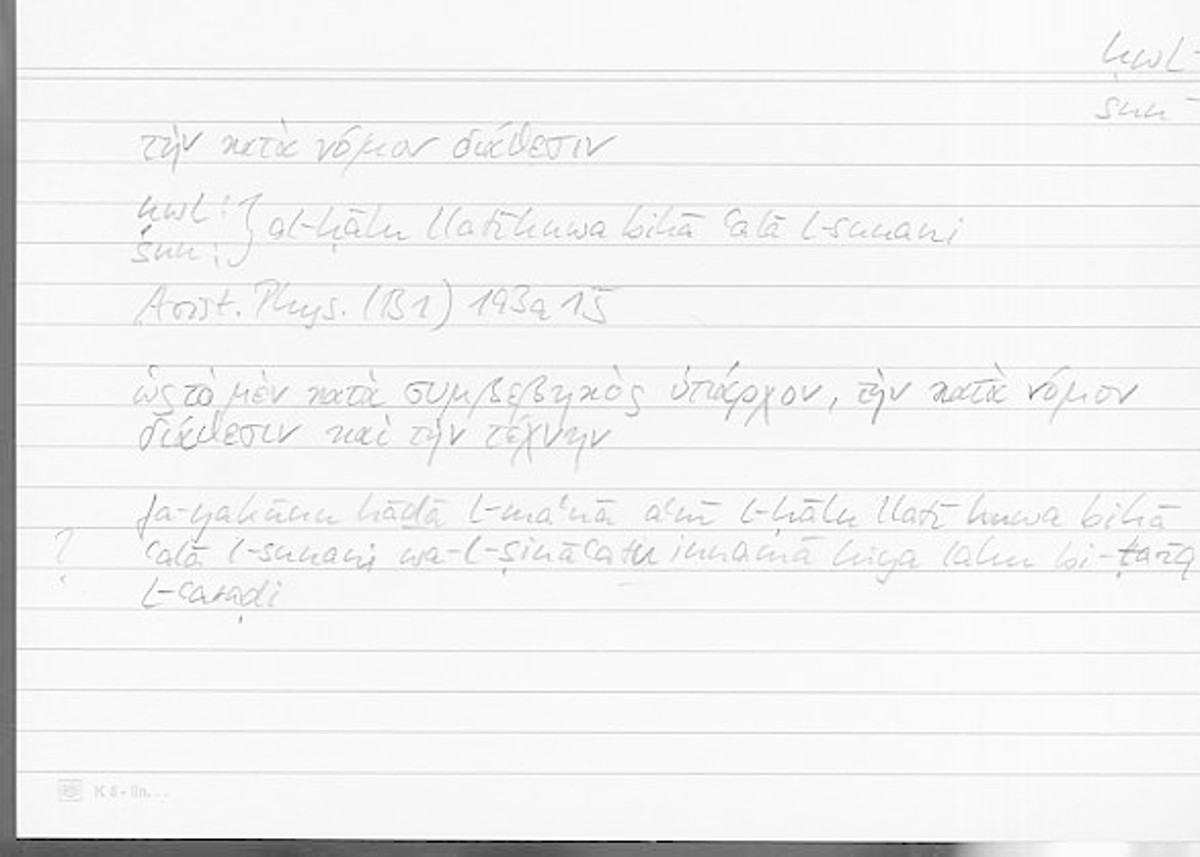 ḥwl
snn
τὴν κατὰ νόμον διάθεσιν
ḥwl :
snn : } al-ḥālu llatī huwa bihā ʿalā l-sunani
Arist. Phys. (B1) 193a15
ὡς τὸ μὲν κατὰ συμβεβηκὸς ὑπάρχον, τὴν κατὰ νόμον
διάθεσιν καὶ τὴν τέχνην
fa-yakūnu hāḏā l-maʿnā aʿnī l-ḥālu llatī huwa bihā
? ʿalā l-sunani wa-l-ṣināʿatu innamā hiya lahu bi-ṭarīq
l-ʿaraḍi